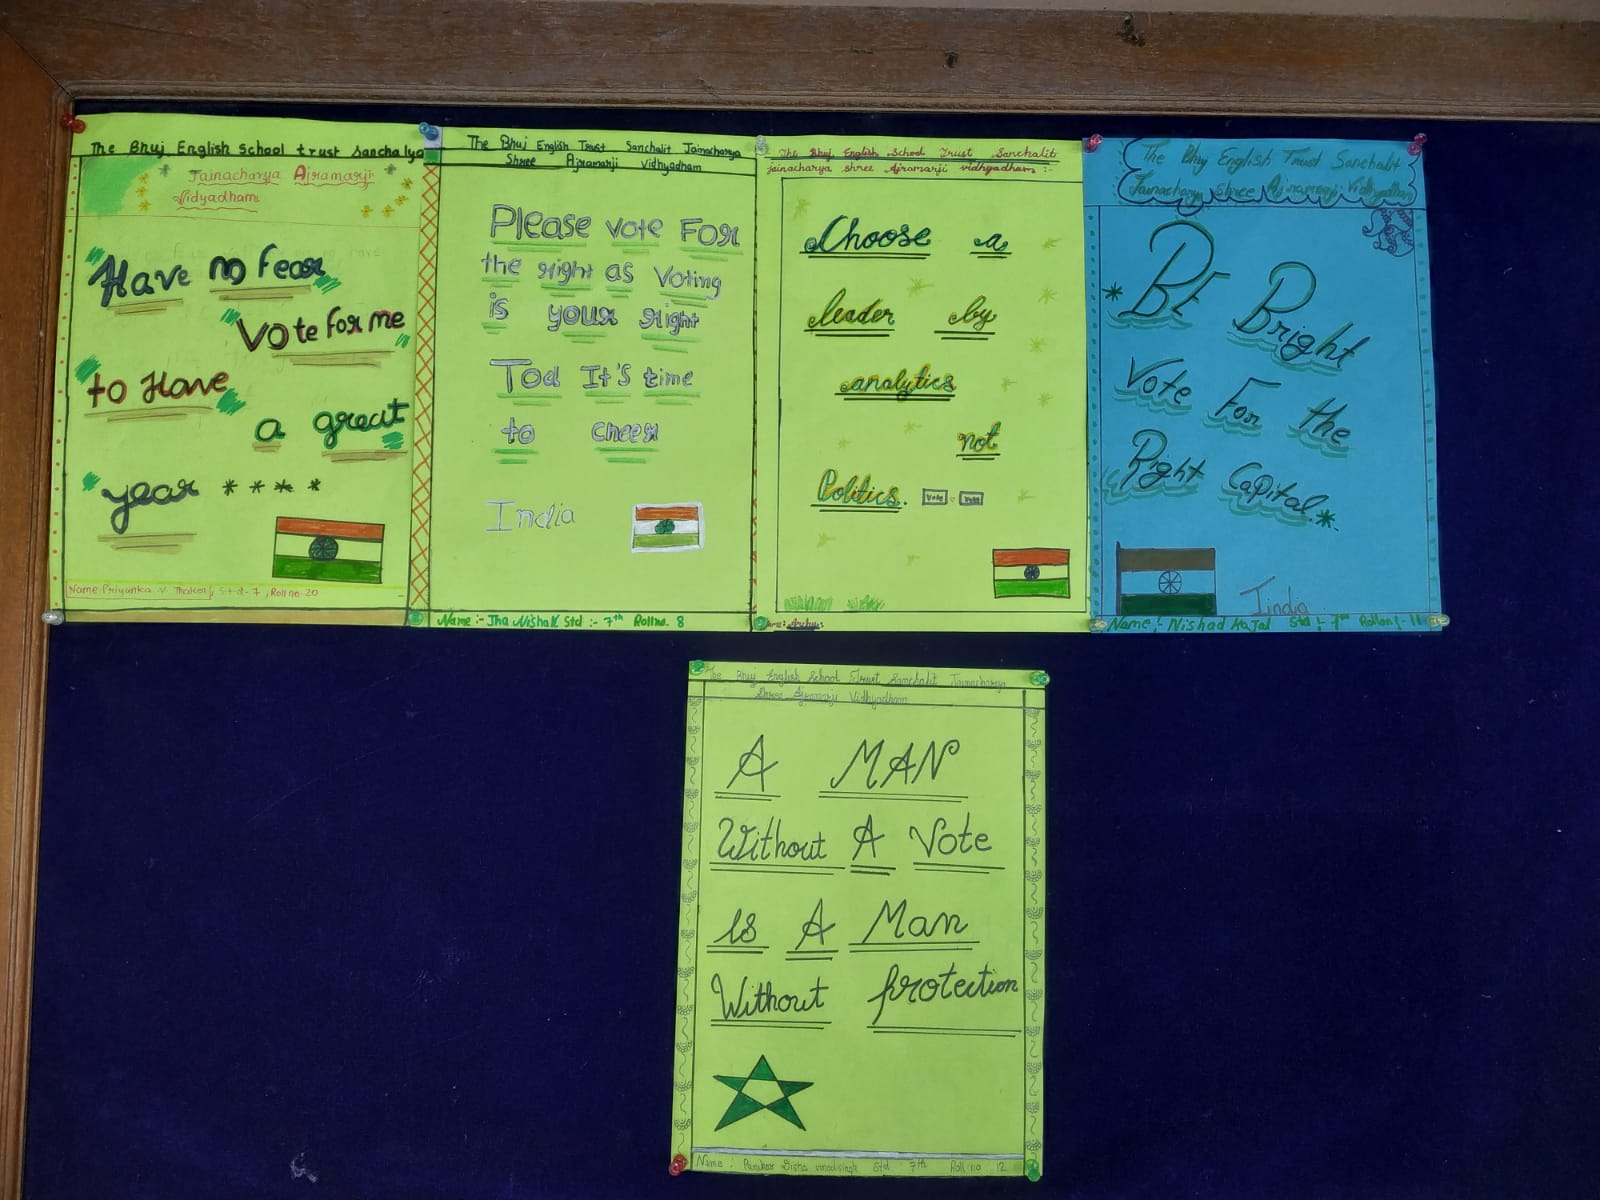 The Bhuj English School trust Sanchalya
Jainacharya Ajramarji
Vidyadham
Have no fear
Vote for me
to Have
a great
year ****
Name: Priyanka v. Thaker, Std-7, Roll no-20
The Bhuj English Trust Sanchalit Jainacharya
Shree Ajramarji Vidhyadham
Please vote For
the right as Voting
is your right
Tod It's time
to cheer
India
Name :- Jha Nishak Std :- 7th Rollno. 8
The Bhuj English School Trust Sanchalit
jainacharya shree Ajramarji vidhyadham :-
Choose a
leader by
analytics
not
Politics. Vote Vote
The Bhuj English Trust Sanchalit
Jainacharya Shree Ajramarji Vidhyadham
BE Bright
Vote For the
Right Capital.
India
Name :- Nishad Kajal Std :- 7th Rollon :- 11
The Bhuj English School Trust Sanchalit Jainacharya
Shree Ajramarji Vidhyadham
A MAN
Without A Vote
is A Man
Without protection
Name : Disha Std 7th Roll no 12